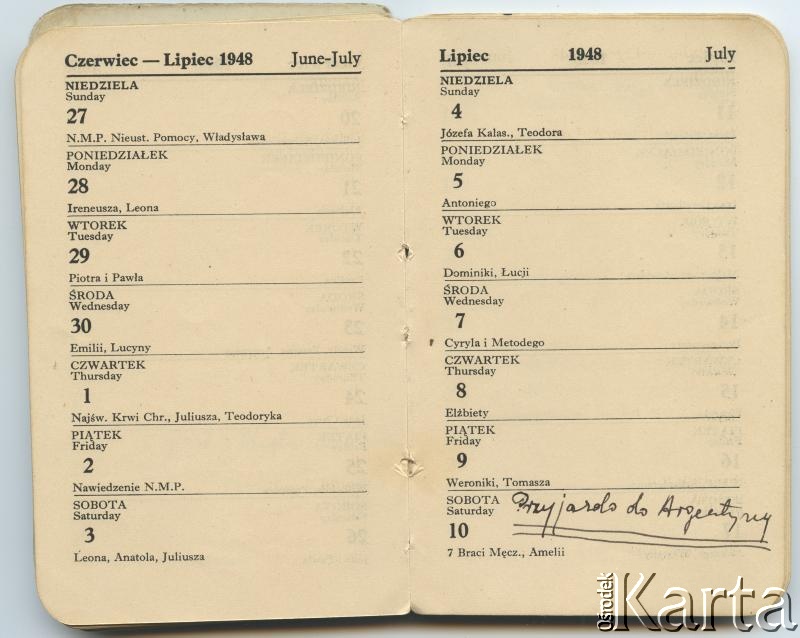 Czerwiec — Lipiec 1948 June-July
NIEDZIELA
Sunday
27
N.M.P. Nieust. Pomocy, Władysława
PONIEDZIAŁEK
Monday
28
Ireneusza, Leona
WTOREK
Tuesday
29
Piotra i Pawła
ŚRODA
Wednesday
30
Emilii, Lucyny
CZWARTEK
Thursday
1
Najśw. Krwi Chr., Juliusza, Teodoryka
PIĄTEK
Friday
2
Nawiedzenie N.M.P.
SOBOTA
Saturday
3
Leona, Anatola, Juliusza
Lipiec 1948 July
NIEDZIELA
Sunday
4
Józefa Kalas., Teodora
PONIEDZIAŁEK
Monday
5
Antoniego
WTOREK
Tuesday
6
Dominiki, Łucji
ŚRODA
Wednesday
7
Cyryla i Metodego
CZWARTEK
Thursday
8
Elżbiety
PIĄTEK
Friday
9
Weroniki, Tomasza
SOBOTA Przyjazd do Argentyny
Saturday
10
7 Braci Męcz., Amelii
Ośrodek Karta